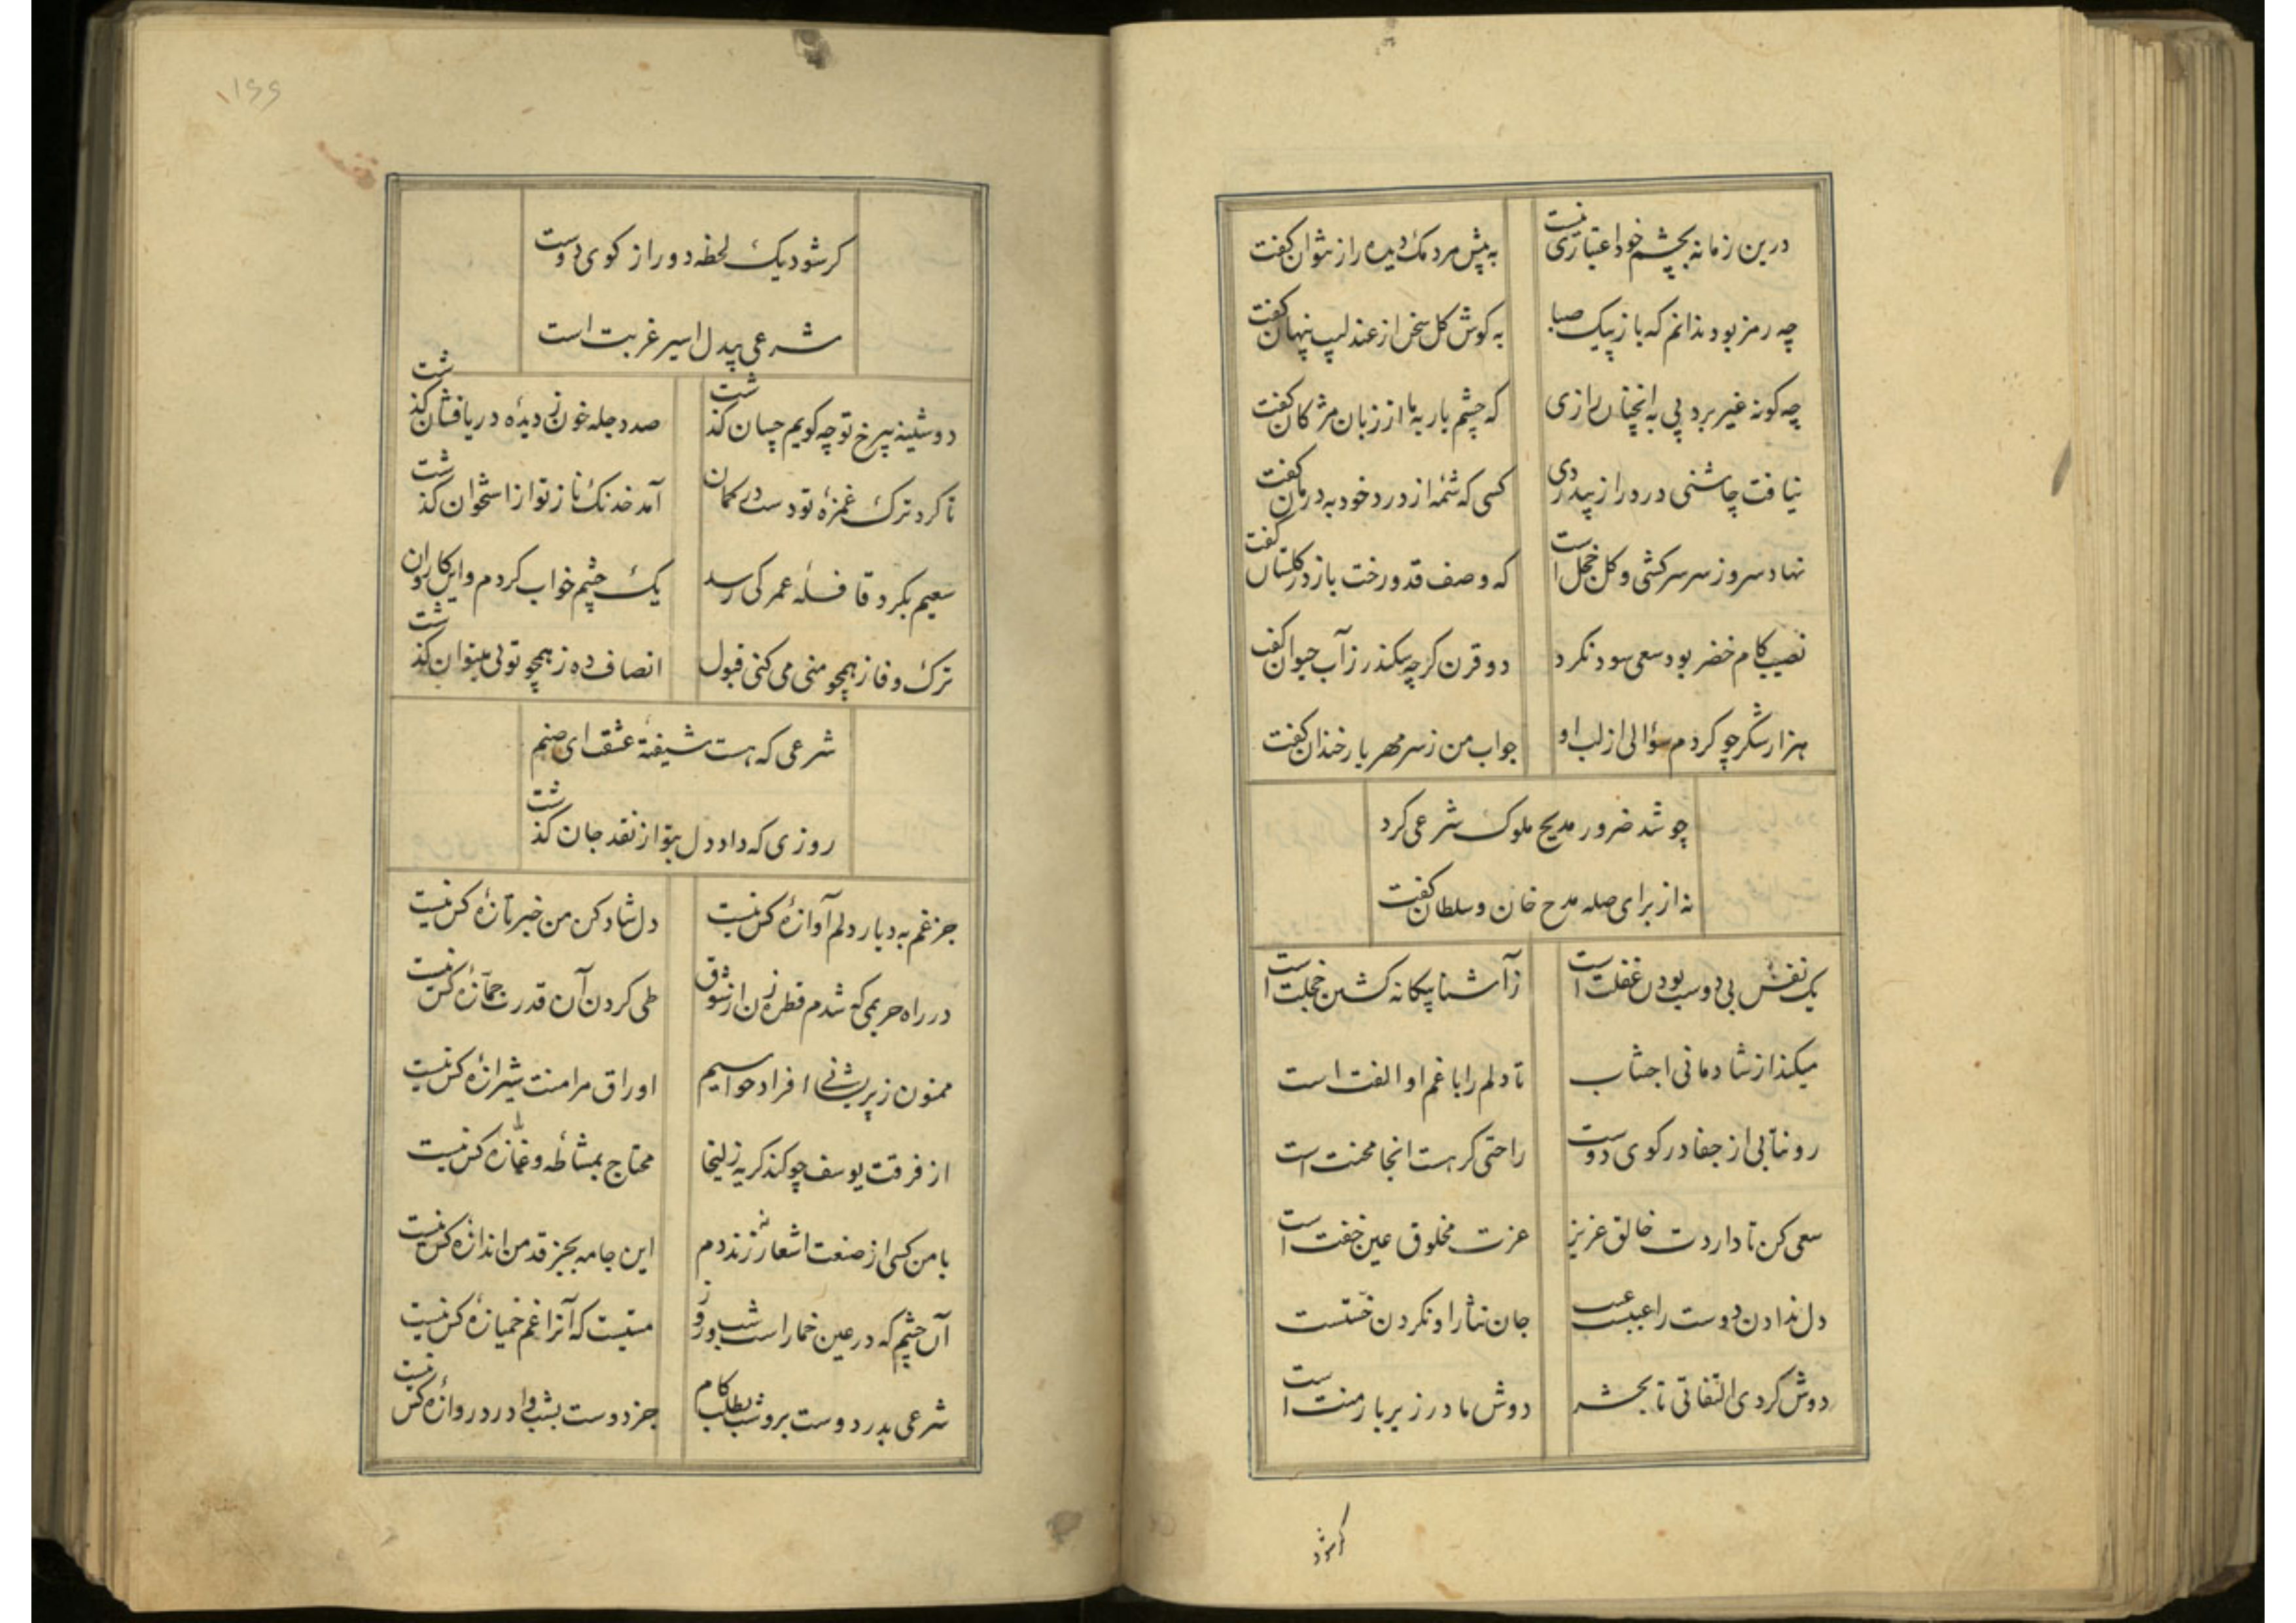 درین زمانه بچشم خود اعتباری نیست
به پیش مردمک دیده راز نتوان کفت
چه رمز بود ندانم که باز پیک صبا
به کوش کل سخن از عندلیب پنهان کفت
چه کونه غیر برد پی به انچنان رازی
که چشم یار به ما از زبان مژکان کفت
نیافت چاشنی درد راز بیدردی
کسی که شمهٔ از درد خود به درمان کفت
نهاد سرو ز سر سرکشی و کل خجل است
که وصف قد و رخت باز در کلستان کفت
نصیب کام خضر بود سعی سود نکرد
دو قرن کرچه سکندر ز آب حیوان کفت
هزار شکر چو کردم سؤالی از لب او
جواب من ز سر مهر یار خندان کفت
چو شد ضرور مدیح ملوک شرعی کرد
نه از برای صله مدح خان و سلطان کفت
یک نفس بی دوست بودن غفلت است
ز آشنا بیکانه کشتن خجلت است
میکند از شادمانی اجتناب
تا دلم را با غم او الفت است
رو نتابی از جفا در کوی دوست
راحتی کر هست انجا محنت است
سعی کن تا داردت خالق عزیز
عزت مخلوق عین خفت است
دل ندادن دوست را عیب
جان نثار او نکردن خستست
دوش کردی التفاتی تا بحشر
دوش ما در زیر بار منت است
کرشود
۱۶۶
کر شود یک لحظه دور از کوی دوست
شرعی بیدل اسیر غربت است
دوشینه بیرخ تو چه کویم چسان کذشت
صد دجله خون ز دیده دریافشان کذشت
تا کرد ترک غمزهٔ تو دست در کمان
آمد خدنک ناز تو از استخوان کذشت
سعیم بکرد قافلهٔ عمر کی رسد
یک چشم خواب کردم و این کاروان کذشت
ترک وفا ز همچو منی می کنی قبول
انصاف ده ز همچو تویی میتوان کذشت
شرعی که هست شیفتهٔ عشقت ای صنم
روزی که داد دل بتو از نقد جان کذشت
جز غم به دیار دلم آوازهٔ کس نیست
دل شاد کن من خبر تازهٔ کس نیست
در راه حریمی که شدم قطره زن از شوق
طی کردن آن قدرت جمّازهٔ کس نیست
ممنون ز پریشانی افراد حواسیم
اوراق مرا منت شیرازهٔ کس نیست
از فرقت یوسف چو کند کریه زلیخا
محتاج بمشاطه و غازهٔ کس نیست
با من کسی از صنعت اشعار نزند دم
این جامه بجز قد من اندازهٔ کس نیست
آن چشم که در عین خمار است شب و روز
مستیست که آنرا غم خمیازهٔ کس نیست
شرعی بدر دوست برو شب بطلب کام
جز دوست بشب وا در دروازهٔ کس نیست